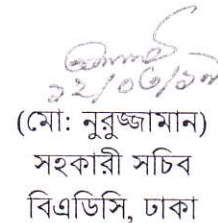 ১২/০৬/১৯
(মো: নুরুজ্জামান)
সহকারী সচিব
বিএডিসি, ঢাকা